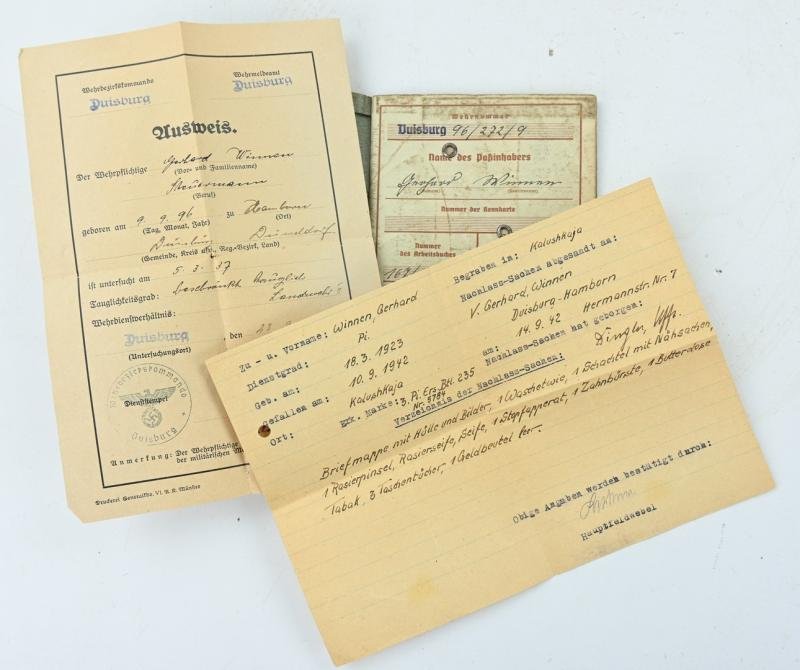 Wehrbezirkskommando
Duisburg
Wehrmeldeamt
Duisburg
Ausweis.
Der Wehrpflichtige Gerhard Winnen
(Vor- und Familienname)
Steuermann
(Beruf)
geboren am 9.9.96 zu Hamborn
(Tag, Monat, Jahr) (Ort)
Duisburg Düsseldorf
(Gemeinde, Kreis usw., Reg.-Bezirk, Land)
ist untersucht am 5.3.37
Tauglichkeitsgrad: beschränkt tauglich
Wehrdienstverhältnis: Landwehr
Duisburg, den
(Untersuchungsort)
Dienststempel
Wehrbezirkskommando
Duisburg
Anmerkung: Der Wehrpflichtige
der militärischen
Druckerei Generalkdo. VI. A. K. Münster
Wehrnummer
Duisburg 96/272/9
Name des Paßinhabers
Gerhard Winnen
Nummer der Kennkarte
Nummer
des Arbeitsbuches
Zu - u. Vorname: Winnen, Gerhard
Dienstgrad: Pi.
Geb. am: 18.3.1923
Gefallen am: 10.9.1942
Ort: Kalushkaja
Erk. Marke: 3. Pi. Ers. Btl. 235
Nr. 5784
Begraben in: Kalushkaja
Nachlass-Sachen abgesandt an:
V. Gerhard, Winnen
Duisburg-Hamborn
Hermannstr. Nr. 7
am: 14.9.42
Nachlass-Sachen hat geborgen:
Dingler, Uffz.
Verzeichnis der Nachlass-Sachen:
Briefmappe mit Hülle und Bilder, 1 Waschetwie, 1 Schachtel mit Nähsachen,
1 Rasierpinsel, Rasierseife, Seife, 1 Stopfapperat, 1 Zahnbürste, 1 Butterdose
Tabak, 3 Taschentücher, 1 Geldbeutel leer.
Obige Angaben werden bestätigt durch:
Hauptfeldwebel